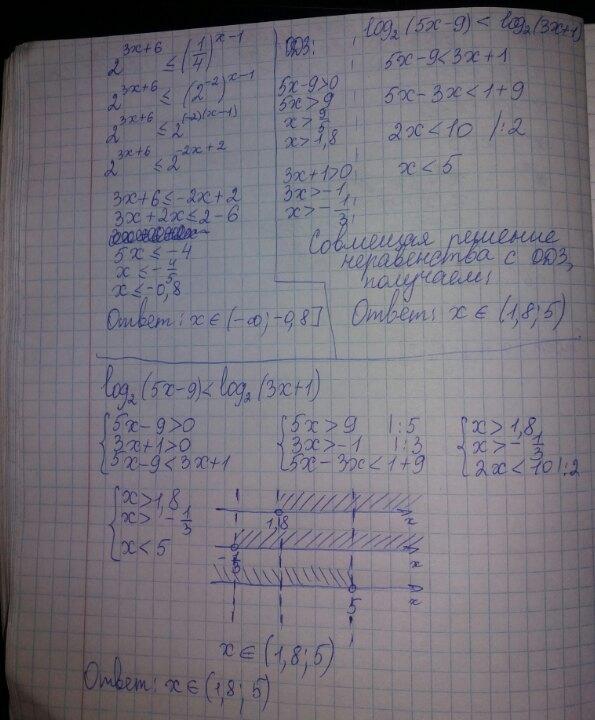 2^{3x+6} ≤ (1/4)^{x-1}
2^{3x+6} ≤ (2^{-2})^{x-1}
2^{3x+6} ≤ 2^{(-2)(x-1)}
2^{3x+6} ≤ 2^{-2x+2}
3x+6 ≤ -2x+2
3x+2x ≤ 2-6
5x ≤ -4
x ≤ -4/5
x ≤ -0,8
Ответ: x ∈ (-∞; -0,8]
ОДЗ:
5x-9>0
5x>9
x>9/5
x>1,8
3x+1>0
3x>-1
x>-1/3
log₂(5x-9) < log₂(3x+1)
5x-9<3x+1
5x-3x<1+9
2x<10 |:2
x<5
Совмещая решение
неравенства с ОДЗ,
получаем:
Ответ: x ∈ (1,8; 5)
log₂(5x-9) < log₂(3x+1)
{5x-9>0
3x+1>0
5x-9<3x+1
{5x>9 |:5
3x>-1 |:3
5x-3x<1+9
{x>1,8
x>-1/3
2x<10 |:2
{x>1,8
x>-1/3
x<5
1,8 x
-1/3 x
5 x
x ∈ (1,8; 5)
Ответ: x ∈ (1,8; 5)